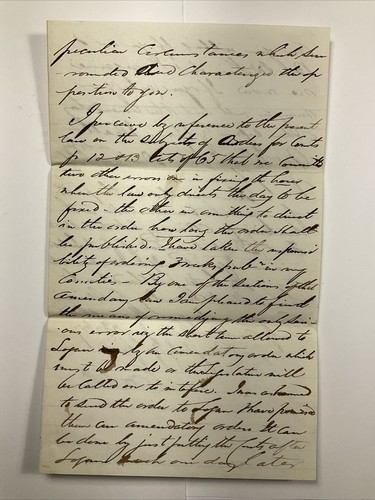 peculiar circumstances which sur
rounded and characterized the op
position to you.
I perceive by reference to the present
law on the subject of Orders for Courts
p 12 & 13 Acts of 65 that we committed
two other errors one in fixing the hour
when the law only directs the day to be
fixed - the other in omitting to direct
in the order how long the order shall
be published. I have taken the responsi
bility of ordering 3 weeks pubn in my
Counties - By one of the sections of the
amendatory law I am pleased to find
the means of remedying the only seri
ous error viz the short time allowed to
Logan by an amendatory order which
must be made or the legislature will
be called on to interfere. I am ashamed
to send the order to Logan I have promised
them an amendatory order. It can
be done by just putting the Courts after
Logan each one day later